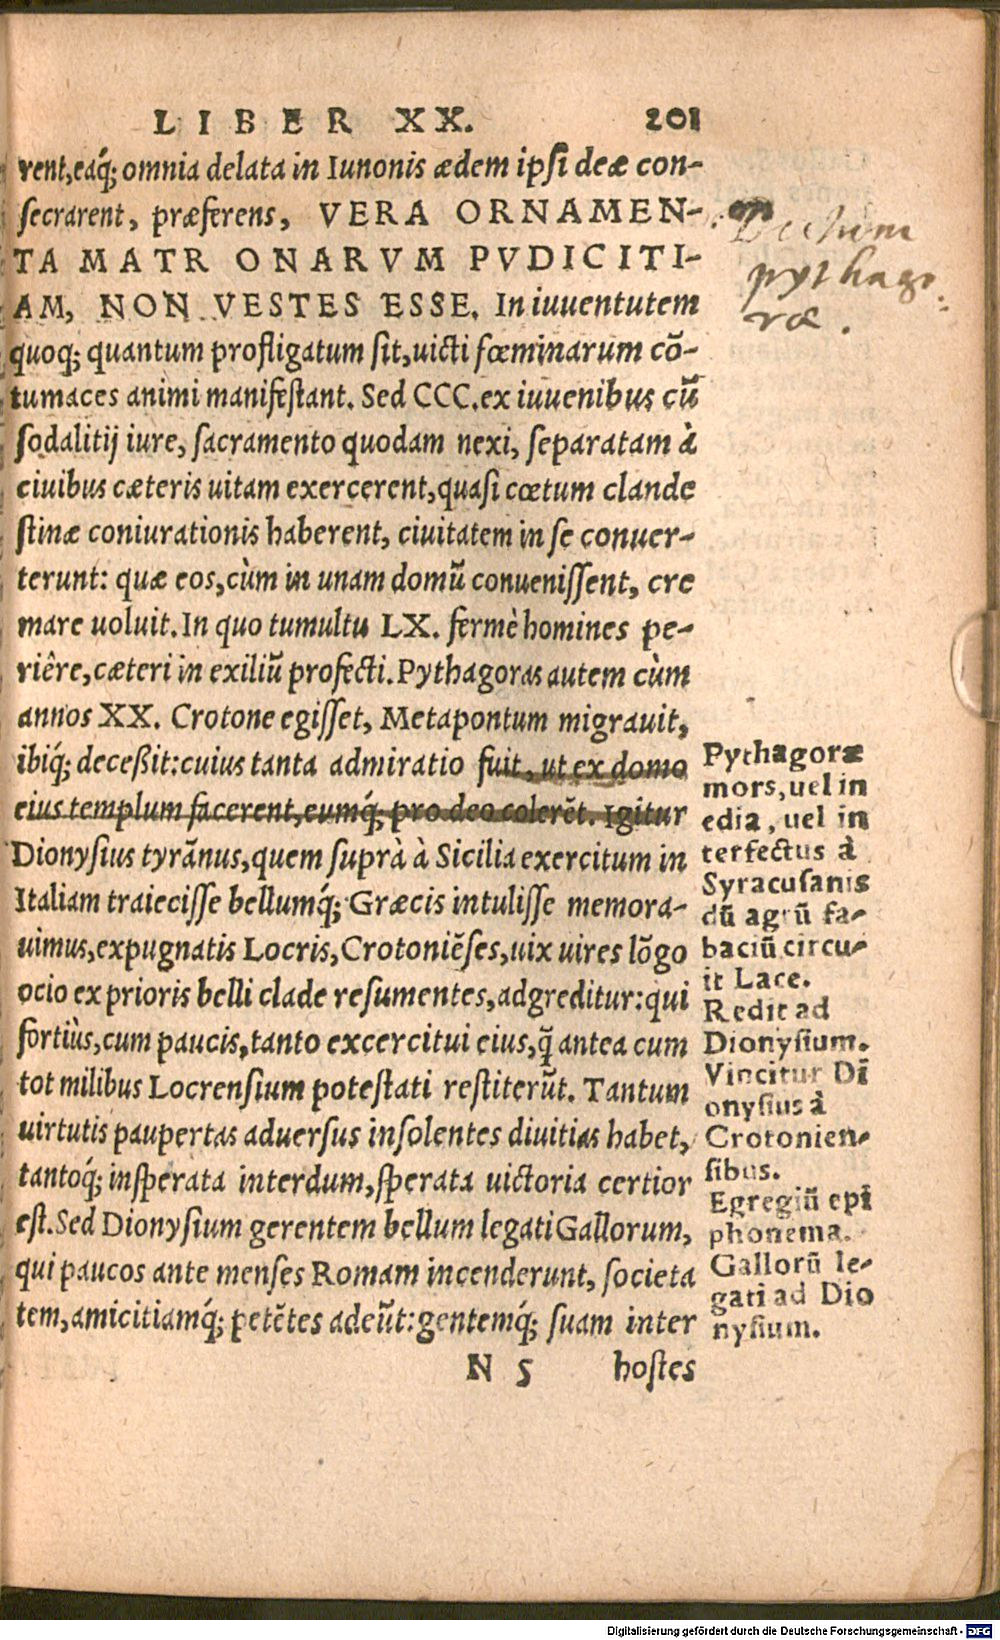 LIBER XX. 201
rent, eaq́; omnia delata in Iunonis ædem ipsi deæ con-
secrarent, præferens, VERA ORNAMEN-
TA MATRONARVM PVDICITI-
AM, NON VESTES ESSE. In iuuentutem
quoq; quantum profligatum sit, uicti fœminarum cō-
tumaces animi manifestant. Sed CCC. ex iuuenibus cū
sodalitij iure, sacramento quodam nexi, separatam à
ciuibus cæteris uitam exercerent, quasi cœtum clande
stinæ coniurationis haberent, ciuitatem in se conuer-
terunt: quæ eos, cùm in unam domū conuenissent, cre
mare uoluit. In quo tumultu LX. fermè homines pe-
riêre, cæteri in exiliū profecti. Pythagoras autem cùm
annos XX. Crotone egisset, Metapontum migrauit,
ibiq́; deceßit: cuius tanta admiratio fuit, ut ex domo
eius templum facerent, eumq́; pro deo colerēt. Igitur
Dionysius tyrānus, quem suprà à Sicilia exercitum in
Italiam traiecisse bellumq́; Græcis intulisse memora-
uimus, expugnatis Locris, Crotoniēses, uix uires lōgo
ocio ex prioris belli clade resumentes, adgreditur: qui
fortiùs, cum paucis, tanto excercitui eius, q̄ antea cum
tot milibus Locrensium potestati restiterūt. Tantum
uirtutis paupertas aduersus insolentes diuitias habet,
tantoq́; insperata interdum, sperata uictoria certior
est. Sed Dionysium gerentem bellum legati Gallorum,
qui paucos ante menses Romam incenderunt, societa
tem, amicitiamq́; petētes adeūt: gentemq́; suam inter
N 5 hostes
Dictum
pythago
ræ.
Pythagoræ
mors, uel in
edia, uel in
terfectus à
Syracusanis
dū agrū fa-
baciū circu-
it Lace.
Redit ad
Dionysium.
Vincitur Di
onysius à
Crotonien-
sibus.
Egregiū epi
phonema.
Gallorū le-
gati ad Dio
nysium.
Digitalisierung gefördert durch die Deutsche Forschungsgemeinschaft - DFG